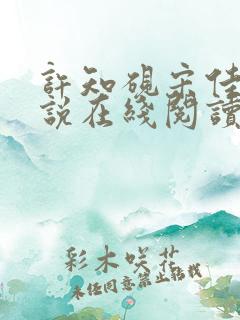 許知硯宋佳
說在綫閱讀
彩木咲花
未经同意禁止转载